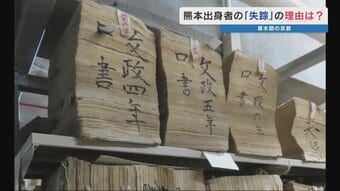 熊本出身者の「失踪」の理由は？
幕末期の京都
文政四年
口書
文政五年
口書
文政六年
口書